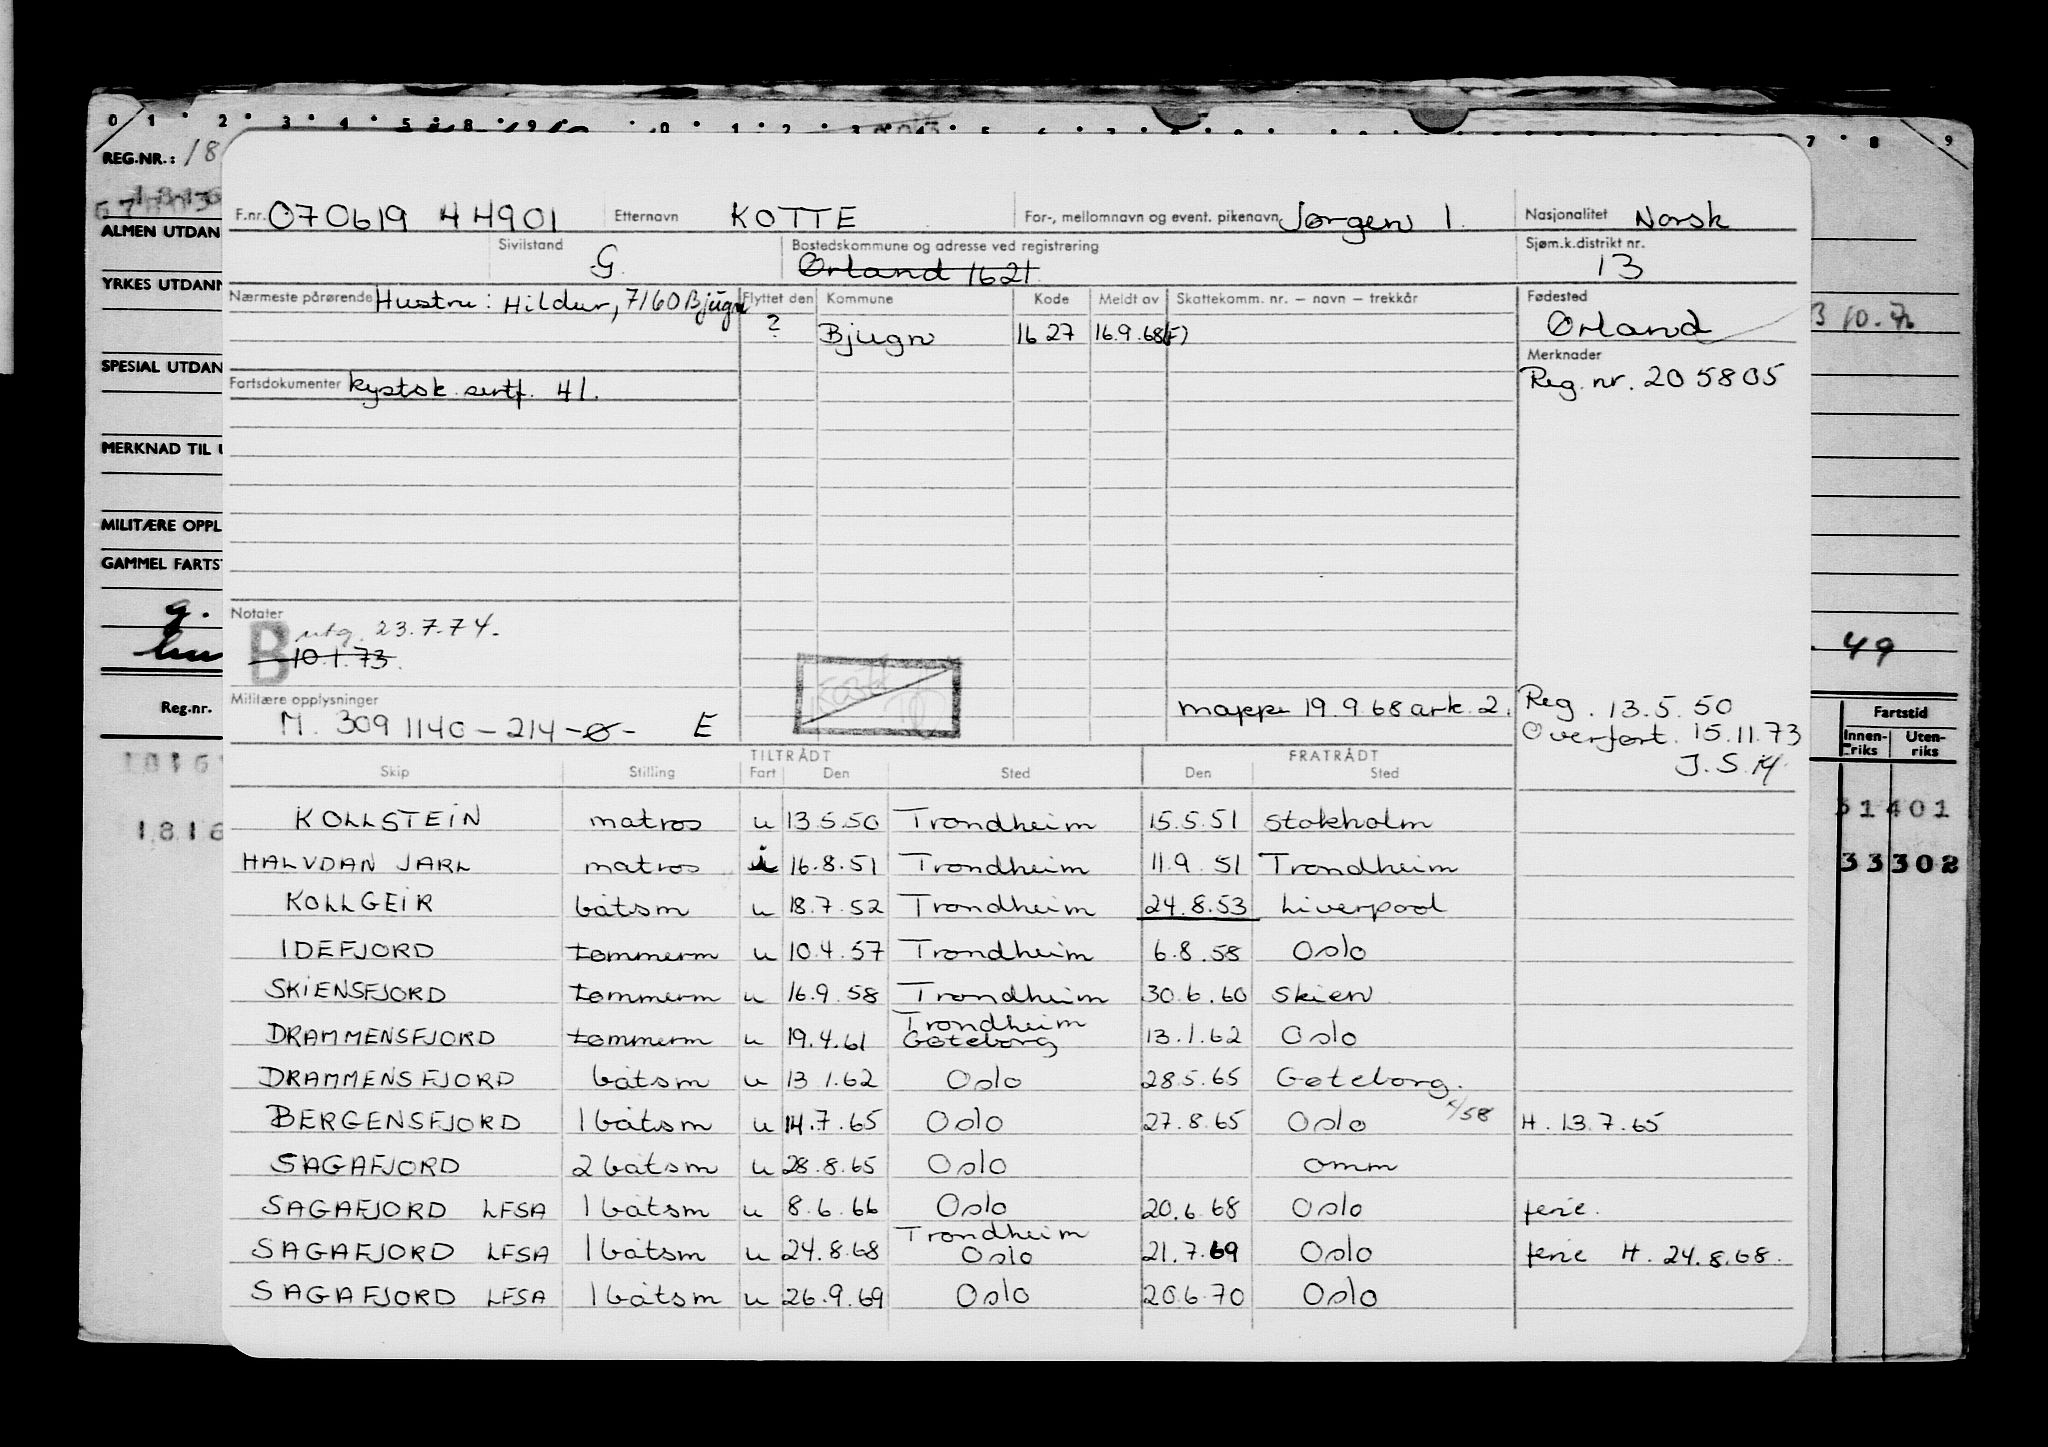 0 1 2 3 4 5 8 9 0 1 2 3 4 5 6 7 8 9 7 8 9
REG.NR.: 18
F.nr. 070619 44901 Etternavn KOTTE For-, mellomnavn og event. pikenavn Jørgen I. Nasjonalitet Norsk
ALMEN UTDAN
Sivilstand G. Bostedskommune og adresse ved registrering Ørland 1621 Sjøm.k.distrikt nr. 13
YRKES UTDANN
Nærmeste pårørende Hustru: Hildur, 7160 Bjugn Flyttet den Kommune Kode Meldt av Skattekomm. nr. – navn – trekkår Fødested
? Bjugn 1627 16.9.68(F) Ørland
3 10.
Merknader
SPESIAL UTDAN
Fartsdokumenter kystsk. sertf. 41. Reg. nr. 205805
MERKNAD TIL U
MILITÆRE OPPL
GAMMEL FARTS
g.
Notater
B utg. 23.7.74.
10.1.73.
49
Militære opplysninger
M. 309 1140 – 214 – ø – E
mappe 19.9.68 ark. 2.
Reg. 13.5.50
Overført. 15.11.73
J.S.M.
Reg.nr.
Fartstid
Innenriks Utenriks
TILTRÅDT FRATRÅDT
Skip Stilling Fart Den Sted Den Sted
KOLLSTEIN matros u 13.5.50 Trondheim 15.5.51 Stokholm
51401
HALVDAN JARL matros i 16.8.51 Trondheim 11.9.51 Trondheim
33302
KOLLGEIR båtsm u 18.7.52 Trondheim 24.8.53 Liverpool
IDEFJORD tømmerm u 10.4.57 Trondheim 6.8.58 Oslo
SKIENSFJORD tømmerm u 16.9.58 Trondheim 30.6.60 Skien
DRAMMENSFJORD tømmerm u 19.4.61 Trondheim Gøteborg 13.1.62 Oslo
DRAMMENSFJORD båtsm u 13.1.62 Oslo 28.5.65 Gøteborg.
BERGENSFJORD 1 båtsm u 14.7.65 Oslo 27.8.65 Oslo H. 13.7.65
SAGAFJORD 2 båtsm u 28.8.65 Oslo omm
SAGAFJORD LFSA 1 båtsm u 8.6.66 Oslo 20.6.68 Oslo ferie.
SAGAFJORD LFSA 1 båtsm u 24.8.68 Trondheim Oslo 21.7.69 Oslo ferie H. 24.8.68.
SAGAFJORD LFSA 1 båtsm u 26.9.69 Oslo 20.6.70 Oslo